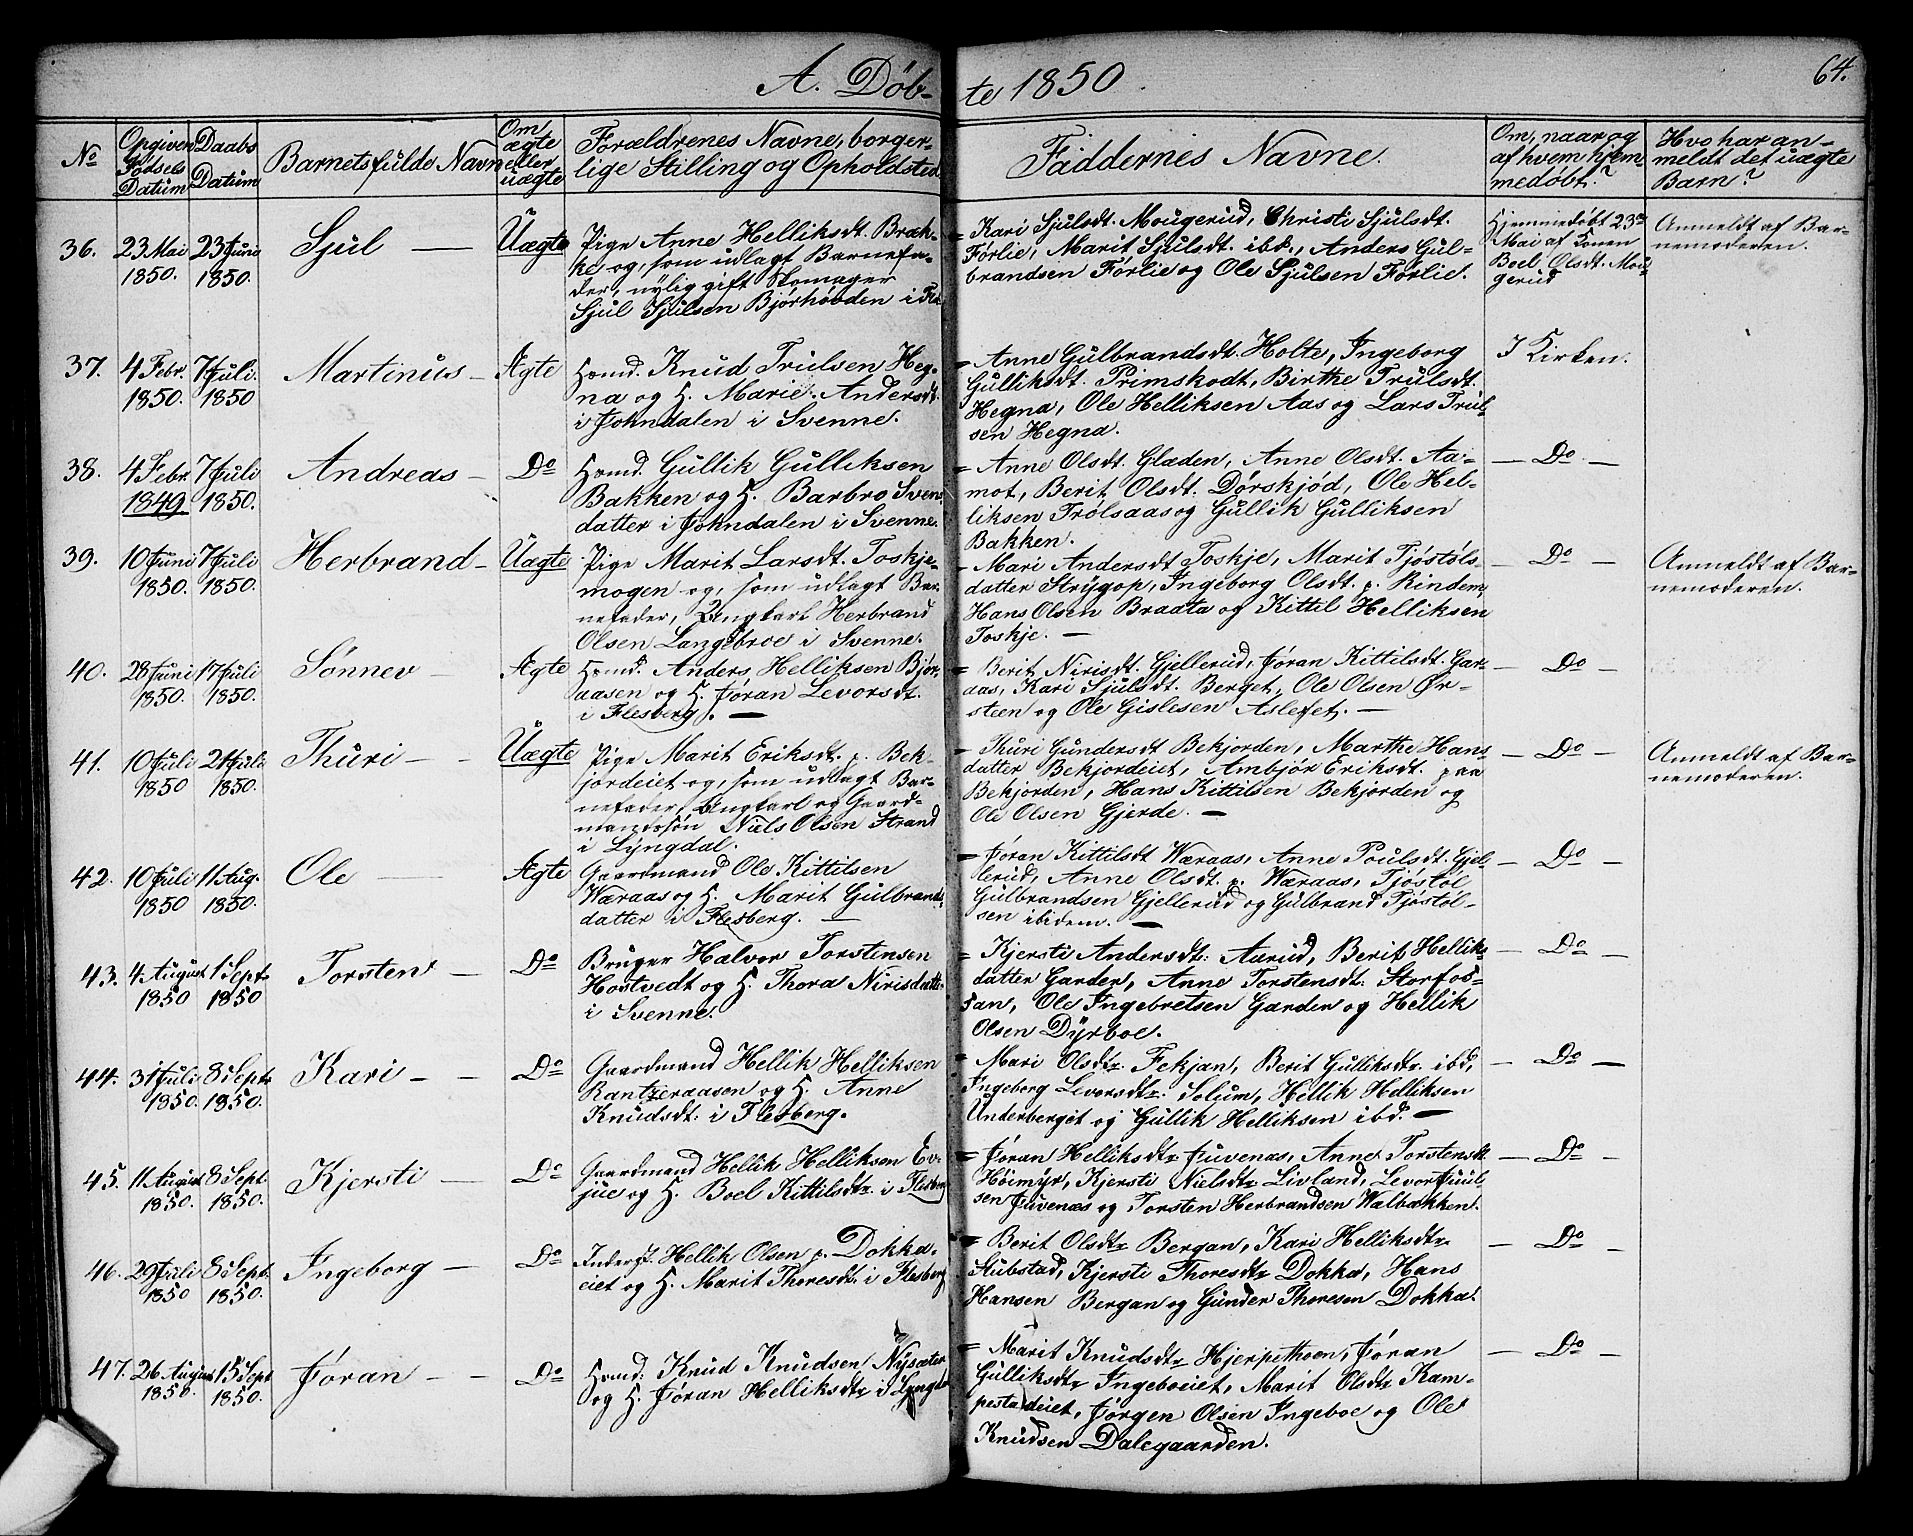 A. Döb- te 1850. 64.
No
Opgiven Födsels Datum
Daabs Datum
Barnets fulde Navn
Om ægte eller uægte
Forældrenes Navne, borger-
lige Stilling og Opholdsted
Faddernes Navne.
Om, naar og
af hvem hjem-
medöbt?
Hvo har an-
meldt det uægte
Barn?
36. 23 Mai 1850. 23 Juni 1850. Sjul — Uægte
Pige Anne Helliksdt. Bræk-
ke og, som udlagt Barnefa-
der, nylig gift Skomager
Sjul Sjulsen Bjørhövden i Fl.
= Kari Sjulsdt. Mougerud, Christi Sjulsdt.
Förlie, Marit Sjulsdt. ibd., Anders Gul-
brandsen Förlie og Ole Sjulsen Förlie.
Hjemmedöbt 23de
Mai af Konen
Boel Olsdt. Mou-
gerud
Anmeldt af Bar-
nemoderen.
37. 4 Febr. 1850. 7 Juli. 1850 Martinus — Ægte
Hsmd. Knud Trulsen Heg-
na og H. Marie Andersdt.
i Johndalen i Svenne.
= Anne Gulbrandsdt. Holte, Ingeborg
Gulliksdt. Primskodt, Birthe Trulsdt.
Hegna, Ole Helliksen Aas og Lars Trul-
sen Hegna.
I Kirken.
38. 4 Febr. 1849. 7 Juli 1850. Andreas — Do
Hsmd. Gullik Gulliksen
Bakken og H. Barbro Svens-
datter i Johndalen i Svenne.
= Anne Olsdt. Glæden, Anne Olsdt. Aa-
mot, Berit Olsdt. Dörskjöd, Ole Hel-
liksen Trolsaas og Gullik Gulliksen
Bakken.
— Do —
39. 10 Juni 1850. 7 Juli 1850. Herbrand — Uægte
Pige Marit Larsdt. Toskje-
mogen og, som udlagt Bar-
nefader, Ungkarl Herbrand
Olsen Langebroe i Svenne.
- Mari Andersdt Toskje, Marit Tjöstöls-
datter Strygop, Ingeborg Olsdt. p. Rinden,
Hans Olsen Braata og Kittil Helliksen
Toskje. —
— Do —
Anmeldt af Bar-
nemoderen.
40. 28 Juni 1850. 17 Juli 1850. Sönnev — Ægte
Hsmd. Anders Helliksen Bjør-
aasen og H. Jøran Levorsdt.
i Flesberg. —
= Berit Nirisdt. Gjellerud, Jøran Kittilsdt. Gar-
aas, Kari Sjulsdt. Berget, Ole Olsen Ør-
steen og Ole Gislesen Aslefet. —
— Do —
41. 10 Juli 1850 21 Juli 1850. Thuri — Uægte
Pige Marit Eriksdt. p. Bek-
jordeiet og, som udlagt Bar-
nefader, Ungkarl og Gaard-
mandssön Niels Olsen Strand
i Lyngdal.
= Thuri Gundersdt Bekjorden, Marthe Hans-
datter Bekjordeiet, Ambjör Eriksdt. paa
Bekjorden, Hans Kittilsen Bekjorden og
Ole Olsen Gjerde. —
— Do —
Anmeldt af Bar-
nemoderen.
42. 10 Juli 1850 11 Aug. 1850. Ole — Ægte
Gaardmand Ole Kittilsen
Wæraas og H. Marit Gulbrands-
datter i Flesberg. —
= Jøran Kittilsdt Wæraas, Anne Poulsdt. Gjel-
lerud, Anne Olsdt. p. Wæraas, Tjöstöl
Gulbrandsen Gjellerud og Gulbrand Tjöstöl-
sen ibidem. —
— Do —
43. 4 August 1850 1 Sept. 1850 Torsten — Do
Bruger Halvor Torstensen
Hostvedt og H. Thora Nirisdatter
i Svenne.
= Kjersti Andersdt. Aarud, Berit Helliks-
datter Garden, Anne Torstensdt. Storfos-
san, Ole Ingebretsen Garden og Hellik
Olsen Dyrboe.
— Do —
44. 31 Juli 1850. 8 Sept. 1850. Kari — Do
Gaardmand Hellik Helliksen
Rantzeraasen og H. Anne
Knudsdt. i Flesberg.
= Mari Olsdtr. Fekjan, Berit Gulliksdtr. ibd,
Ingeborg Levorsdtr. Solum, Hellik Helliksen
Underberget og Gullik Helliksen ibd. —
— Do —
45. 11 August 1850. 8 Sept. 1850. Kjersti — Do
Gaardmand Hellik Helliksen Ev-
jue og H. Boel Kittilsdtr. i Flesberg
= Jøran Helliksdtr Juvenæs, Anne Torstensdt.
Höimyr, Kjersti Nielsdtr Livland, Levor Juul-
sen Juvenæs og Torsten Herbrandsen Walbækken.
— Do —
46. 29 Juli 1850 8 Sept. 1850. Ingeborg — Do
Inderst. Hellik Olsen p. Dokka-
eiet og H. Marit Thoresdt. i Flesberg
= Berit Olsdtr Bergan, Kari Helliksdtr.
Stubstad, Kjersti Thoresdtr Dokka, Hans
Hansen Bergan og Gunder Thoresen Dokka.
— Do —
47. 26 August 1850. 15 Sept 1850. Jøran — Do
Hsmd. Knud Knudsen Nysæter
og H. Jøran Helliksdtr i Lyngdal
= Marit Knudsdtr Hjerpethoen, Jøran
Gulliksdtr Ingeboeiet, Marit Olsdtr Kam-
pestadeiet, Jørgen Olsen Ingeboe og Ole
Knudsen Dalegaarden.
— Do —